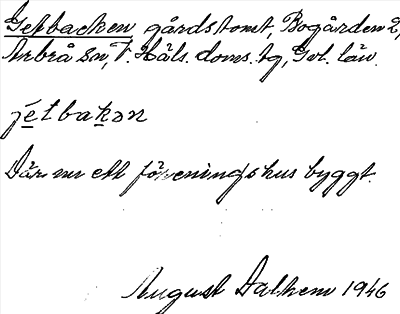 Getbacken gårdstomt, Bogården 2,
Arbrå sn, V. Häls. doms. tg, Gvl. län.
jetbakən
Där nu ett föreningshus byggt.
August Dalhem 1946